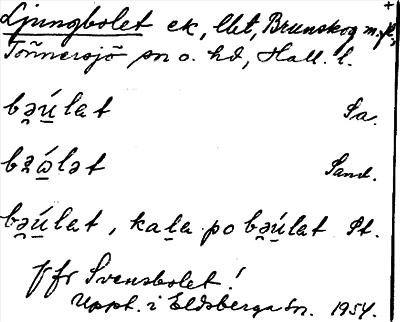 Ljungbolet ek, lbt, Brunskog m.fl.,
Tönnersjö sn o. hd, Hall. l.
bə̯ú̲lat Sa.
Sand.
bə̯ú̲lat, kaḻa po bə̯ú̲lat Pt.
ffr Svensbolet!
Uppt. i Eldsberga sn. 1954.